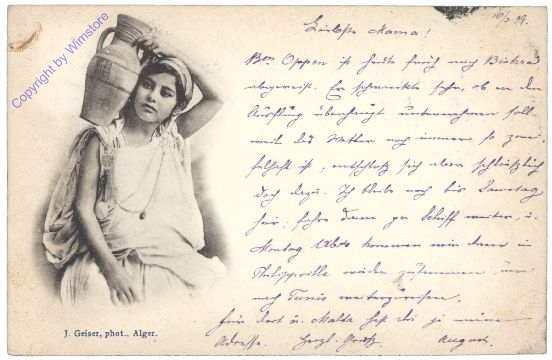 Copyright by Wimstore
10/3 99.
Liebste Mama!
Bon Oppen ist heute früh nach Biskra
abgereist. Er schwankte sehr, ob er den
Ausflug überhaupt unternehmen soll
weil das Wetter noch immer so zwei-
felhaft ist, entschloß sich aber schließlich
doch dazu. Ich bleibe noch bis Samstag
hier, fahre dann per Schiff weiter, u.
Montag Abds kommen wir dann in
Philippeville wieder zusammen, um
nach Tunis weiterzureisen.
Für dort u. Malta hast du ja meine
Adresse. Herzl. Grüße August.
J. Geiser, phot., Alger.